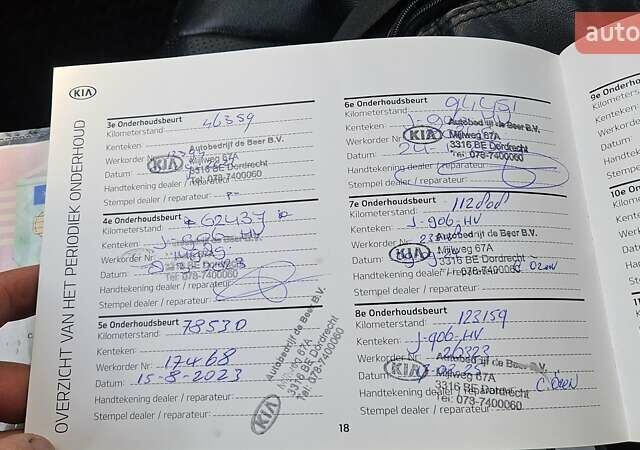 auto
KIA
OVERZICHT VAN HET PERIODIEK ONDERHOUD
3e Onderhoudsbeurt
Kilometerstand: 46359
Kenteken
Werkorder Nr
Datum
Handtekening dealer / reparateur:
Stempel dealer / reparateur:
KIA
Autobedrijf de Beer B.V.
Mijlweg 67A
3316 BE Dordrecht
Tel: 078-7400060
4e Onderhoudsbeurt
Kilometerstand: 62437
Kenteken: J-906-HV
Werkorder Nr
Datum
Handtekening dealer / reparateur:
Stempel dealer / reparateur:
078-7400060
5e Onderhoudsbeurt
Kilometerstand: 78530
Kenteken:
Werkorder Nr: 17468
Datum: 15-8-2023
Handtekening dealer / reparateur:
Stempel dealer / reparateur:
KIA
Autobedrijf de Beer B.V.
Mijlweg 67A
3316 BE Dordrecht
Tel: 078-7400060
6e Onderhoudsbeurt
Kilometerstand: 94451
Kenteken
Werkorder Nr
Datum
Handtekening dealer / reparateur:
Stempel dealer / reparateur:
KIA
Autobedrijf de Beer B.V.
Mijlweg 67A
3316 BE Dordrecht
Tel: 078-7400060
7e Onderhoudsbeurt
Kilometerstand: 112808
Kenteken: J-906-HV
Werkorder Nr
Datum
Handtekening dealer / reparateur:
Stempel dealer / reparateur:
KIA
Autobedrijf de Beer B.V.
Mijlweg 67A
3316 BE Dordrecht
Tel: 078-7400060
8e Onderhoudsbeurt
Kilometerstand: 123159
Kenteken: J-906-HV
Werkorder Nr
Datum
Handtekening dealer / reparateur
Stempel dealer / reparateur:
KIA
Autobedrijf de Beer B.V.
Mijlweg 67A
3316 BE Dordrecht
Tel: 078-7400060
18
9e Onderhoud
Kilometerstand
Kenteken:
Werkorder
Datum:
Handteken
Stempel de
10e Onde
Kilometers
Kenteken
Werkorde
Datum: